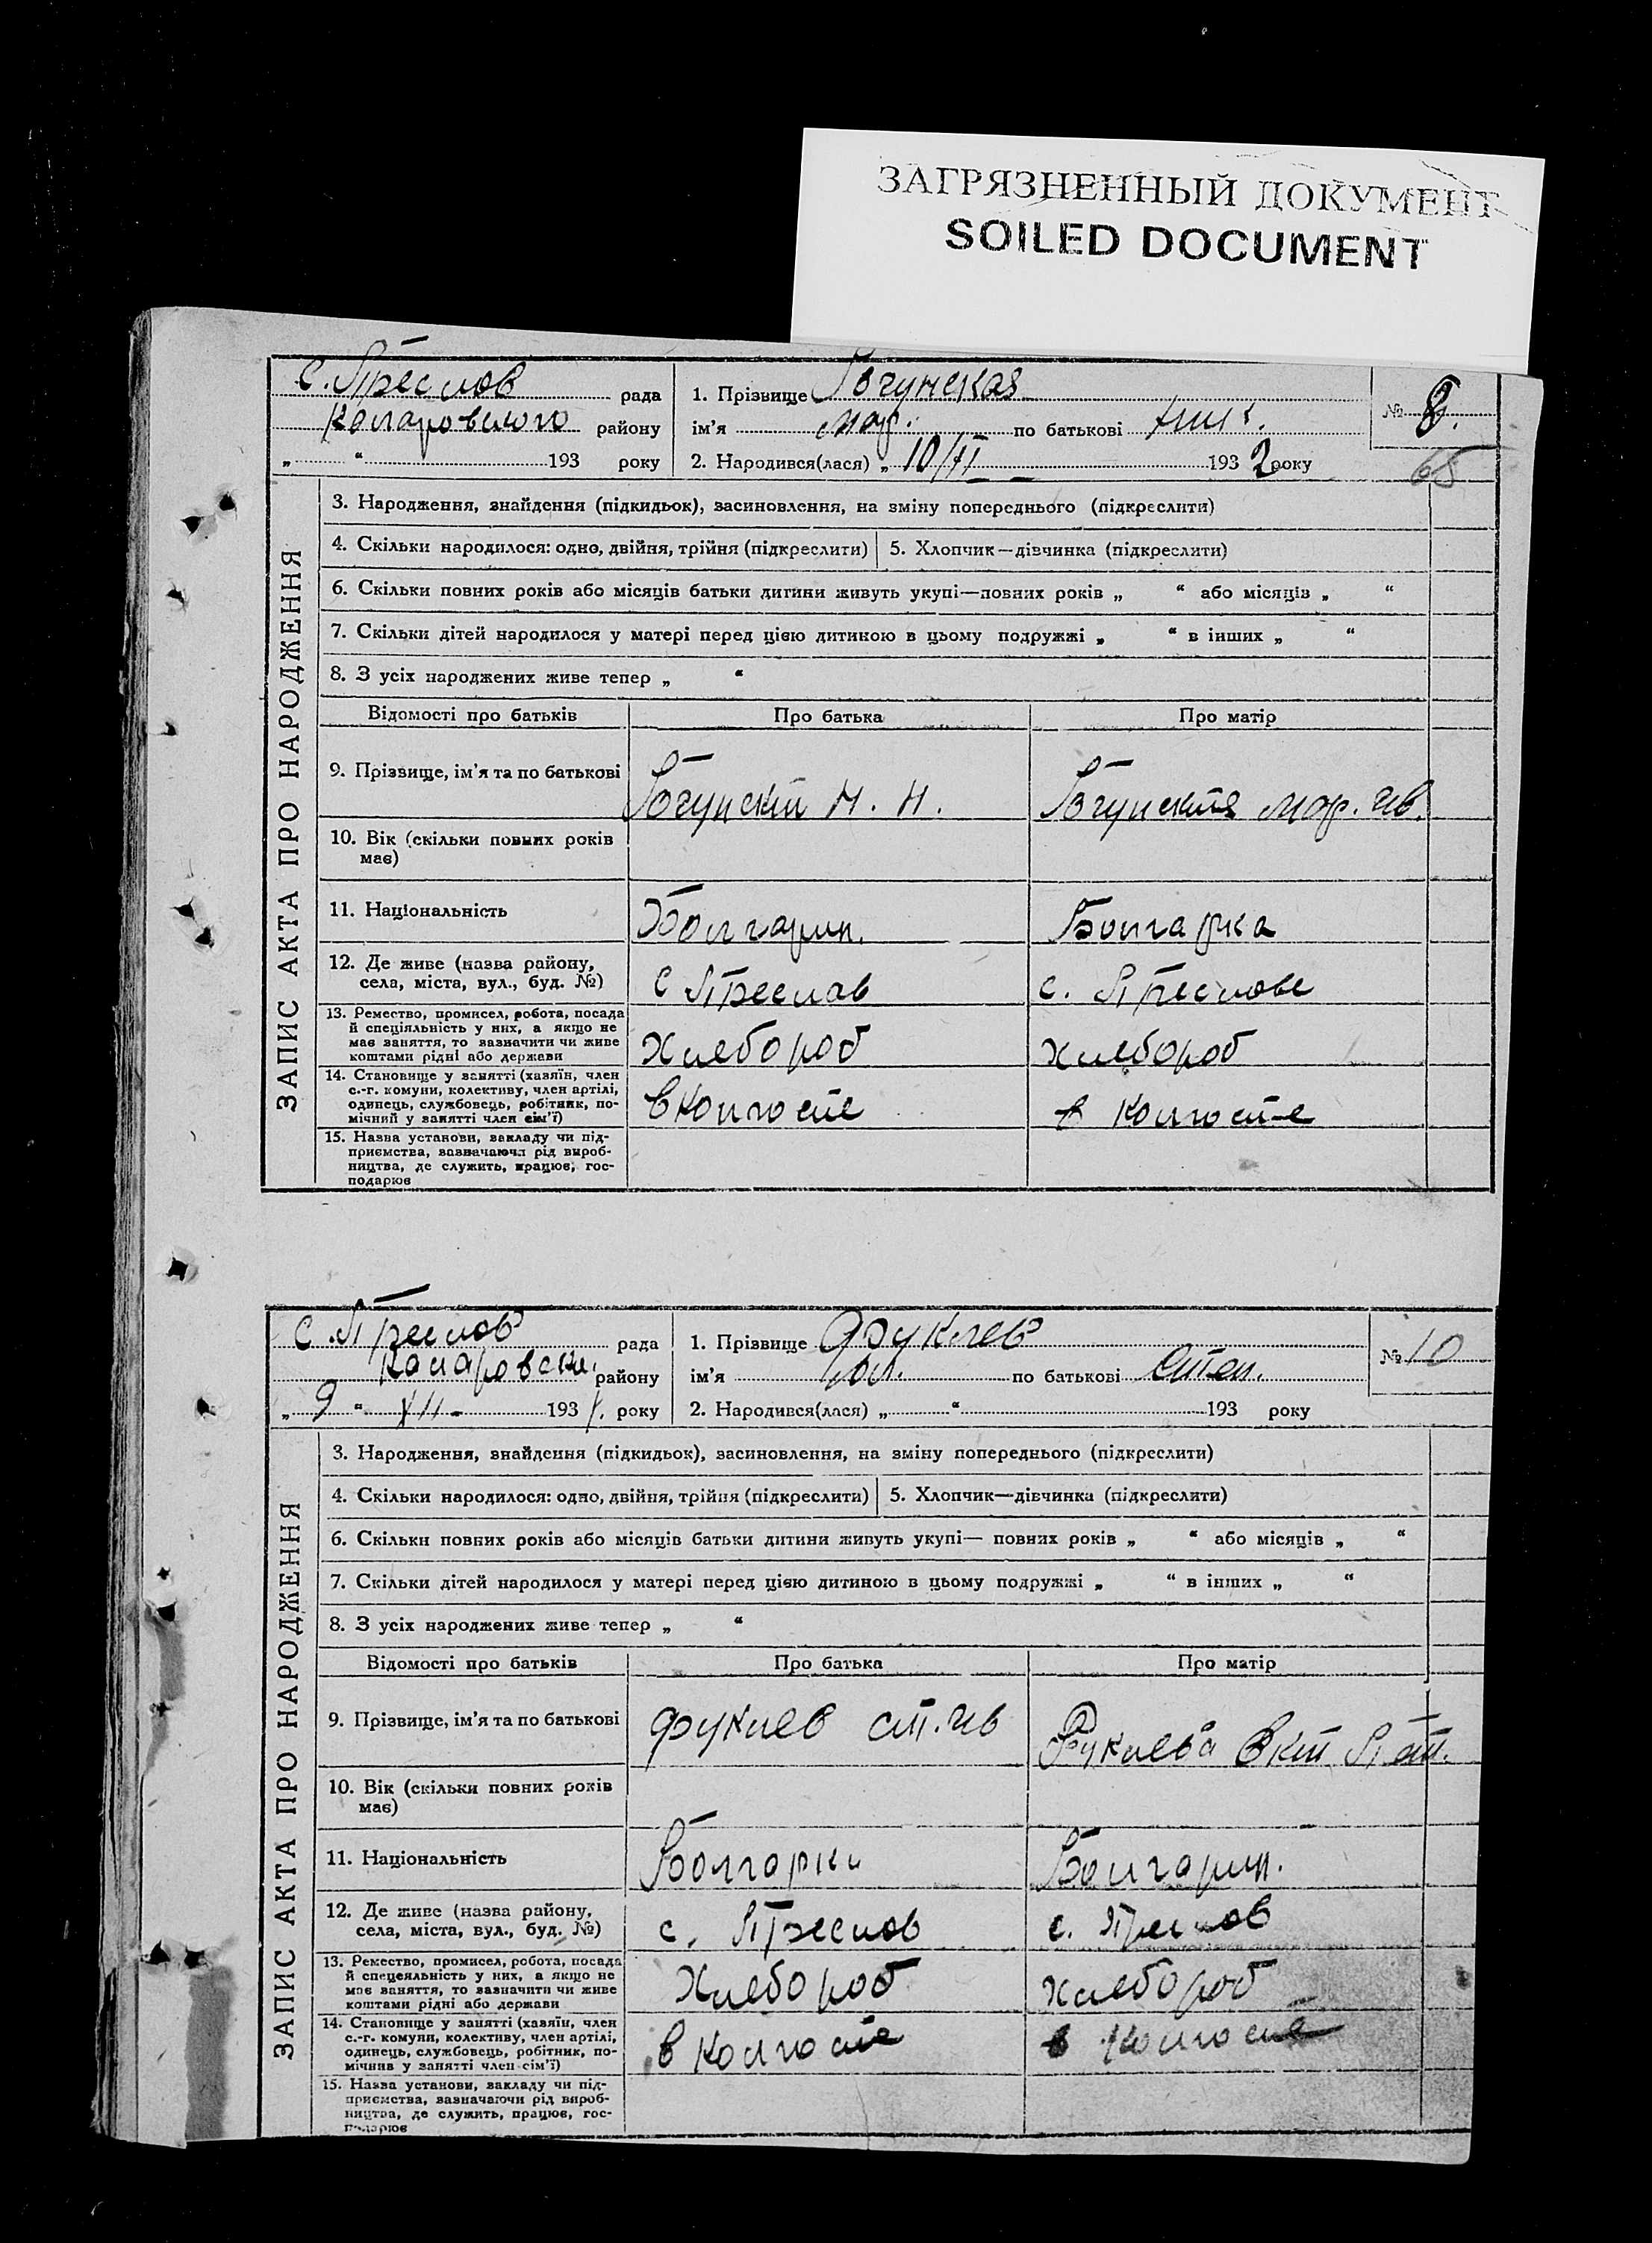 ЗАГРЯЗНЕННЫЙ ДОКУМЕНТ
SOILED DOCUMENT
с. Преслов рада
Коларовского району
„ “ 193 року
1. Прізвище
ім’я мар. по батькові ник.
2. Народився(лася) „ 10/VI 1932 року
№ 8.
65
ЗАПИС АКТА ПРО НАРОДЖЕННЯ
3. Народження, знайдення (підкидьок), засиновлення, на зміну попереднього (підкреслити)
4. Скільки народилося: одно, двійня, трійня (підкреслити)
5. Хлопчик—дівчинка (підкреслити)
6. Скільки повних років або місяців батьки дитини живуть укупі—повних років „ “ або місяців „ “
7. Скільки дітей народилося у матері перед цією дитиною в цьому подружжі „ “ в інших „ “
8. З усіх народжених живе тепер „ “
Відомості про батьків Про батька Про матір
9. Прізвище, ім’я та по батькові
Н. Н.
мар. ив.
10. Вік (скільки повних років
має)
11. Національність
Болгарин.
Болгарка
12. Де живе (назва району,
села, міста, вул., буд. №)
с Преслав
с. Преслове
13. Ремество, промисел, робота, посада
й спеціяльність у них, а якщо не
має заняття, то зазначити чи живе
коштами рідні або держави
Хлебороб
хлебороб
14. Становище у занятті (хазяїн, член
с.-г. комуни, колективу, член артілі,
одинець, службовець, робітник, по-
мічний у занятті член сім’ї)
в колгоспе
в колгоспе
15. Назва установи, закладу чи під-
приємства, зазначаючи рід вироб-
ництва, де служить, працює, гос-
подарює
с. Преслов рада
Коларовски. району
„ 9 “ XII 193 року
1. Прізвище Фуклев
ім’я по батькові Степ.
2. Народився(лася) „ “ 193 року
№ 10
ЗАПИС АКТА ПРО НАРОДЖЕННЯ
3. Народження, знайдення (підкидьок), засиновлення, на зміну попереднього (підкреслити)
4. Скільки народилося: одно, двійня, трійня (підкреслити)
5. Хлопчик—дівчинка (підкреслити)
6. Скільки повних років або місяців батьки дитини живуть укупі— повних років „ “ або місяців „ “
7. Скільки дітей народилося у матері перед цією дитиною в цьому подружжі „ “ в інших „ “
8. З усіх народжених живе тепер „ “
Відомості про батьків Про батька Про матір
9. Прізвище, ім’я та по батькові
Фуклев ст. ив
Фуклева
10. Вік (скільки повних років
має)
11. Національність
Болгарки
Болгарин.
12. Де живе (назва району,
села, міста, вул., буд. №)
с. Преслов
с. Преслов
13. Ремество, промисел, робота, посада
й спецеяльність у них, а якщо не
має заняття, то зазначити чи живе
коштами рідні або держави
Хлебороб
хлебороб
14. Становище у занятті (хазяїн, член
с.-г. комуни, колективу, член артілі,
одинець, службовець, робітник, по-
мічний у занятті член сім’ї)
в колгоспе
в колгоспе
15. Назва установи, закладу чи під-
приємства, зазначаючи рід вироб-
ництва, де служить, працює, гос-
подарює